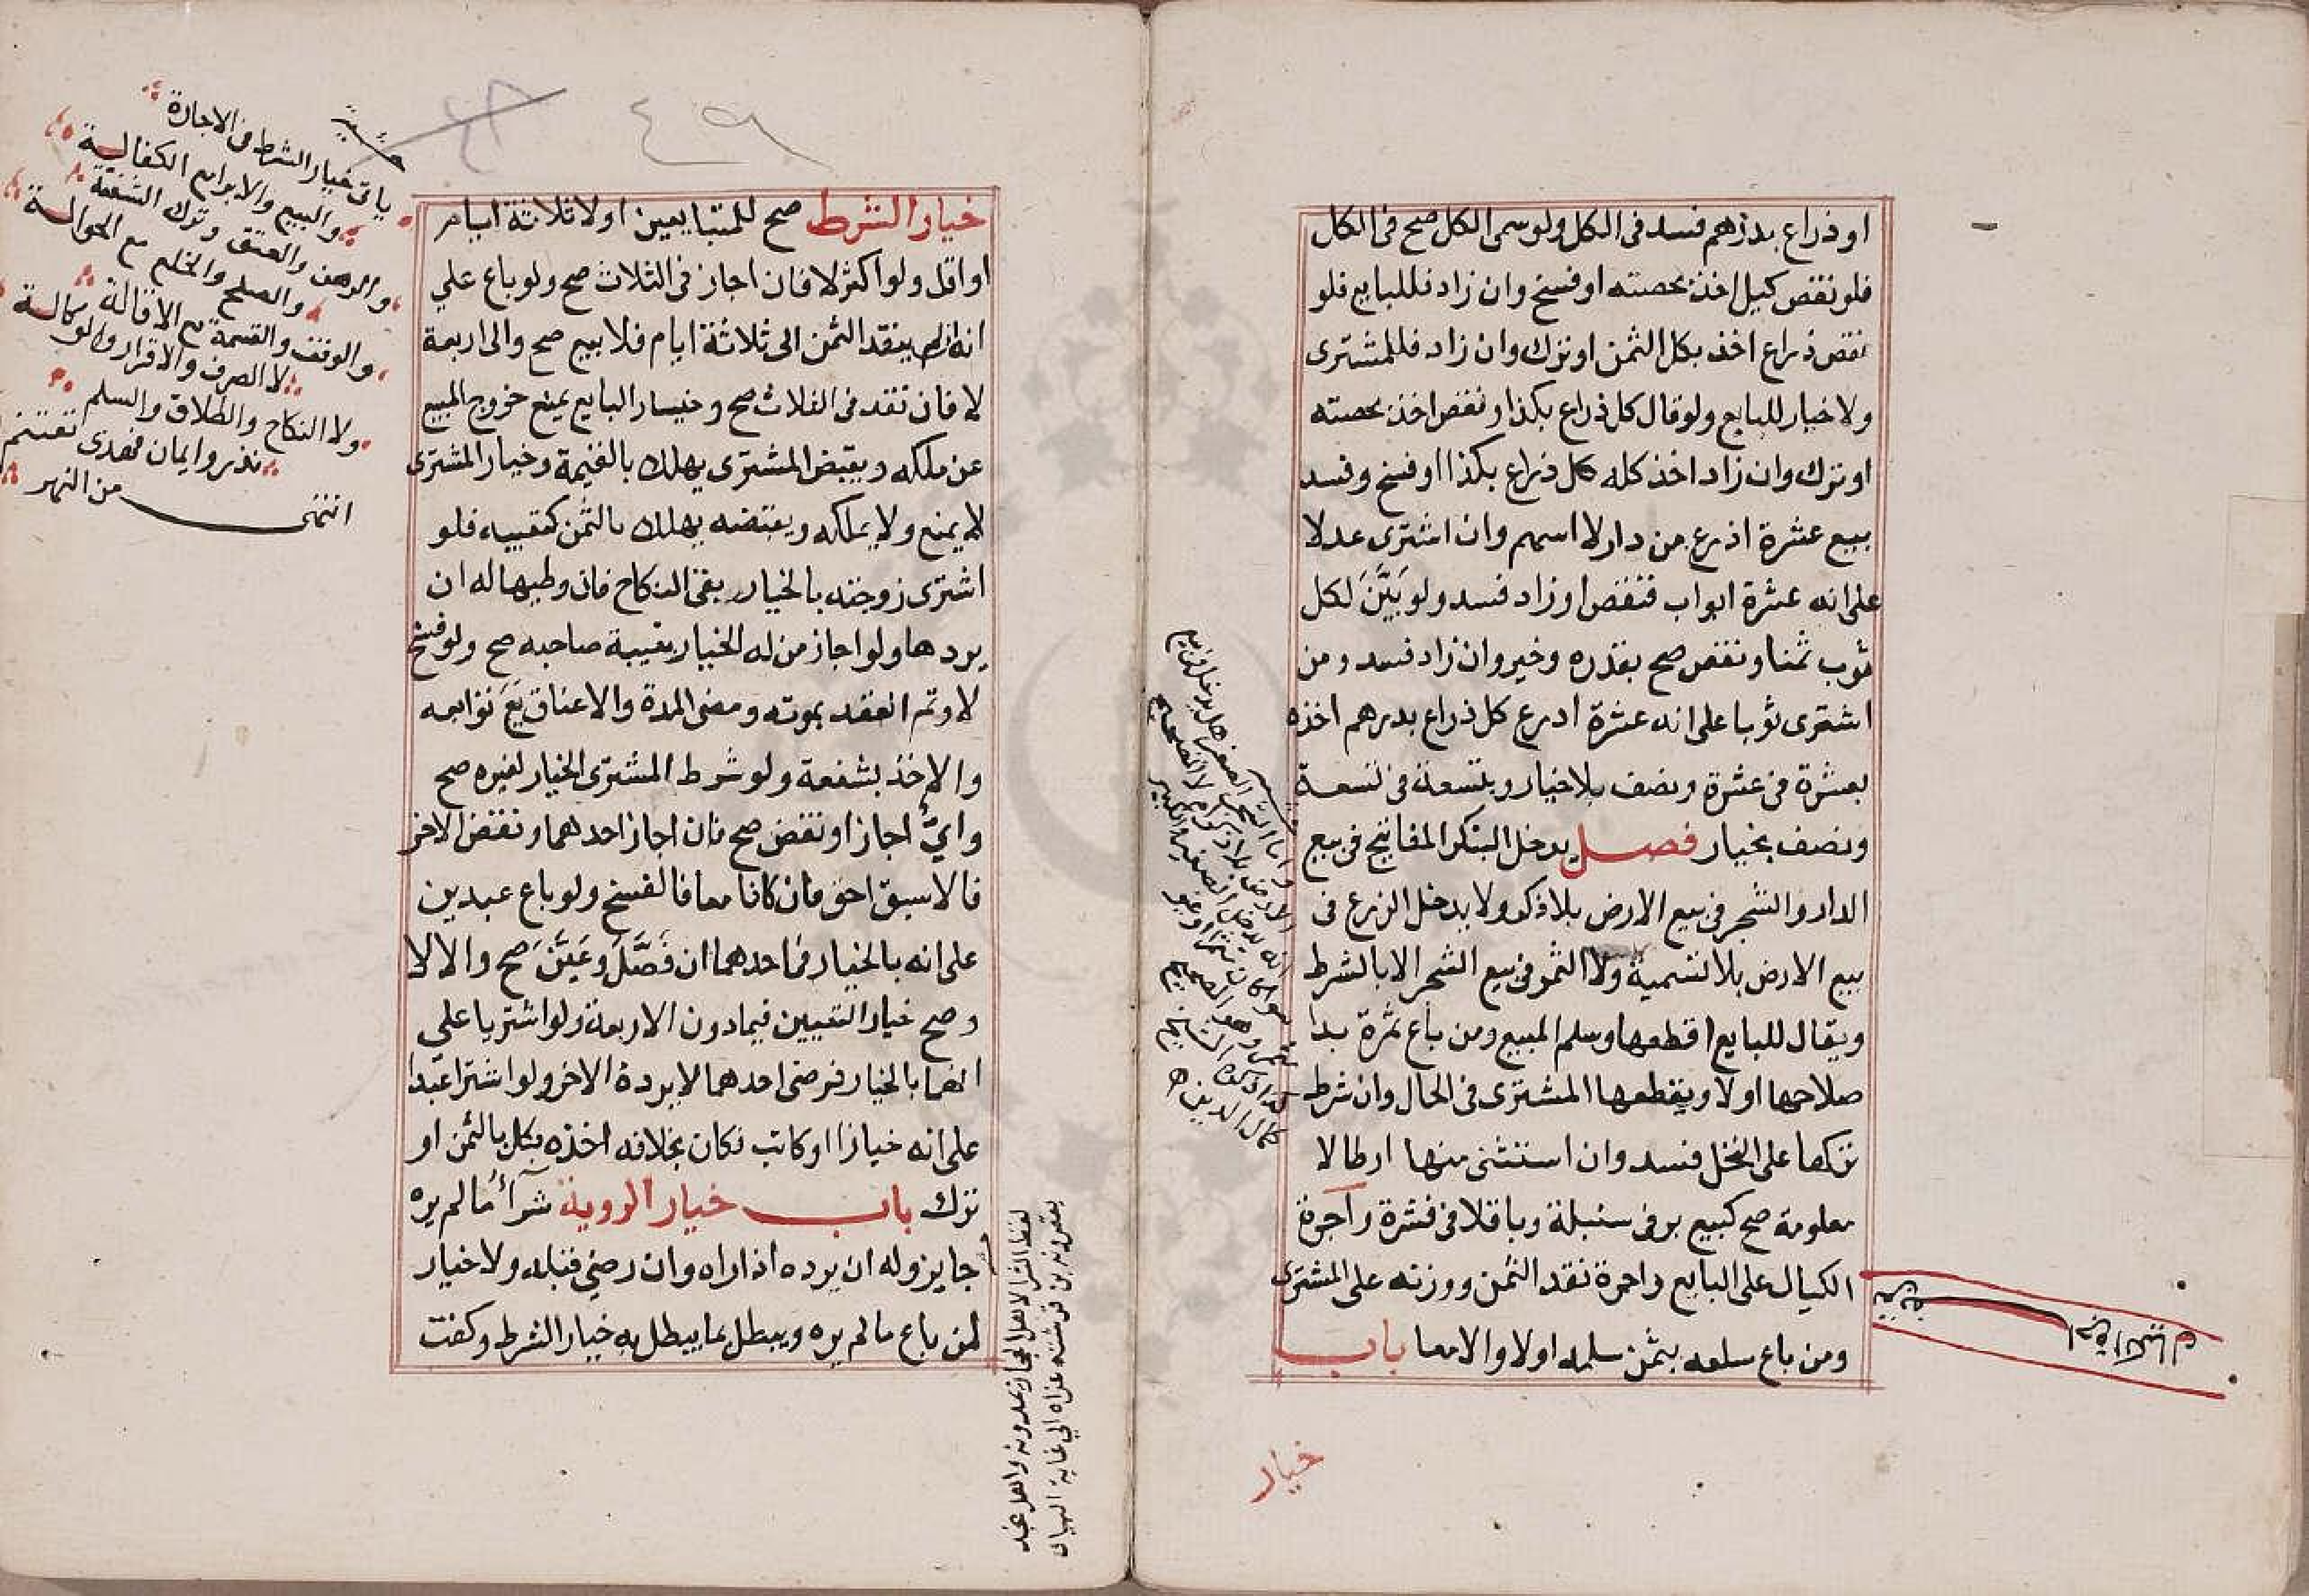 او ذراع بدرهم فسد في الكل ولو سمى الكل صح في الكل
فلو نقص كيل اخذ بحصته او فسخ وان زاد فللبايع فلو
نقص ذراع اخذ بكل الثمن او ترك وان زاد فللمشترى
ولا خيار للبايع ولو قال كل ذراع بكذا ونقص اخذ بحصته
او ترك وان زاد اخذ كله كل ذراع بكذا او فسخ وفسد
بيع عشرة اذرع من دار لا اسهم وان اشترى عدلا
على انه عشرة اثواب فنقص او زاد فسد ولو بَيَّنَ لكل
ثوب ثمنا ونقص صح بقدره وخير وان زاد فسد ومن
اشترى ثوبا على انه عشرة ادرع كل ذراع بدرهم اخذه
بعشرة في عشرة ونصف بلا خيار وبتسعة في تسعة
ونصف بخيار فصل يدخل البنا والمفاتيح في بيع
الدار والشجر في بيع الارض بلا ذكر ولا يدخل الزرع في
بيع الارض بلا تسمية ولا الثمر في بيع الشجر الا بالشرط
ويقال للبايع اقطعها وسلم المبيع ومن باع ثمرة بدا
صلاحها اولا ويقطعها المشترى في الحال وان شرط
تركها على النخل فسد وان استثنى منها ارطالا
معلومة صح كبيع بر في سنبلة وباقلا في قشرة واجرة
الكيال على البايع واجرة نقد الثمن ووزنه على المشترى
ومن باع سلعه بثمن سلمه اولا والا معا باب
خيار
٤٩
خيار الشرط صح للمتبايعين او لا ثلاثة ايام
او اقل ولو اكثر لا فان اجاز في الثلاث صح ولو باع علي
انه ان لم ينقد الثمن الى ثلاثة ايام فلا بيع صح والى اربعة
لا فان نقد في الثلاث صح وخيار البايع يمنع خروج المبيع
عن ملكه وبقبض المشترى يهلك بالقيمة وخيار المشترى
لا يمنع ولا يملكه وبقبضه يهلك بالثمن كتعيبه فلو
اشترى زوجته بالخيار بقى النكاح فان وطيها له ان
يردها ولو اجاز من له الخيار بغيبة صاحبه صح ولو فسخ
لا وتم العقد بموته ومضى المدة والاعتاق وتوابعه
والاخذ بشفعة ولو شرط المشترى الخيار لغيره صح
وايٌّ اجاز او نقض صح فان اجاز احدهما ونقض الاخر
فالاسبق احق فان كانا معا فالفسخ ولو باع عبدين
على انه بالخيار في احدهما ان فَصَّلَ وَعَيَّنَ صح والا لا
وصح خيار التعيين فيما دون الاربعة ولو اشتريا علي
انهما بالخيار فرضى احدهما لا يرده الاخر ولو اشترا عبدا
على انه خبازا او كاتب فكان بخلافه اخذه بكل الثمن او
ترك باب خيار الروية شرآءُ ما لم يره
جايز وله ان يرده اذا راه وان رضي قبله ولا خيار
لمن باع ما لم يره ويبطل بما يبطل به خيار الشرط وكفت
ياتي خيار الشرط في الاجارة
والبيع والابراء الكفالية
والرهن والعتق وترك الشفعة
والصلح والخلع مع الحوالية
والوقف والقسمة مع الاقالة
لا الصرف والاقرار والوكالية
ولا النكاح والطلاق والسلم
نذر وايمان فهذى تغتنم
انتهى من النهر